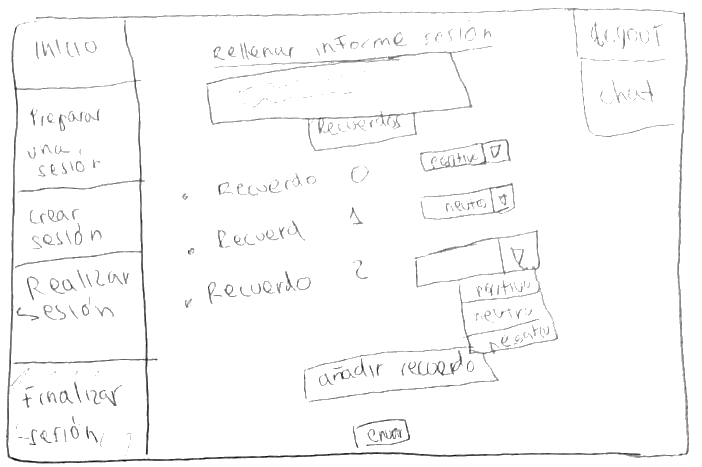 Inicio
Preparar
una
sesión
crear
sesión
Realizar
sesión
Finalizar
sesión
Rellenar informe sesión
Recuerdos
Recuerdo 0
positivo
Recuerd 1
neutro
Recuerdo 2
positivo
neutro
negativo
añadir recuerdo
enviar
logout
chat